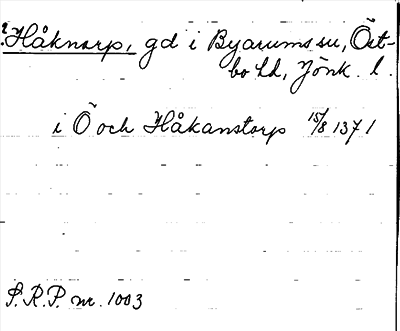 ?Håknarp, gd i Byarums sn, Öst-
bo hd, Jönk. l.
i Ö och Håkanstorp 15/8 1371
S.R.P. nr. 1003